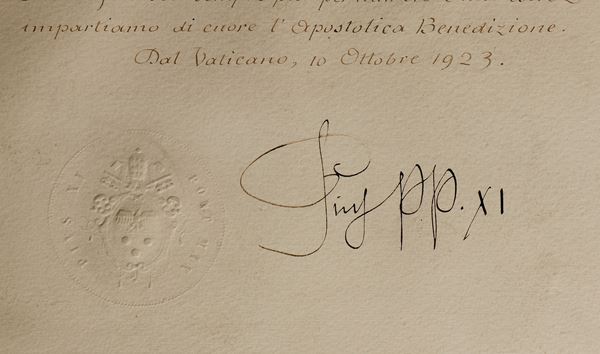 impartiamo di cuore l' Apostolica Benedizione.
Dal Vaticano, 10 Ottobre 1923.
Pius PP. XI
PIUS XI PONT MAX